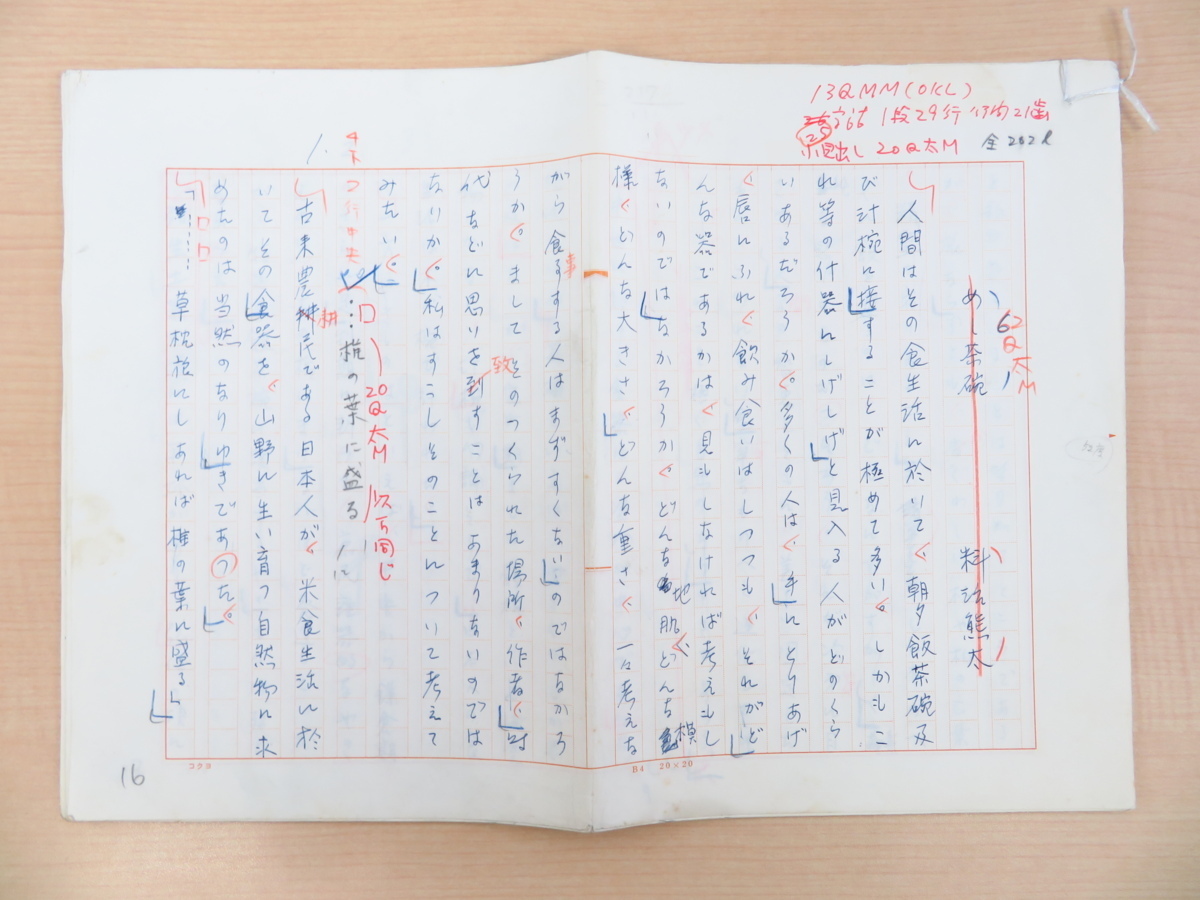 13QMM(OKL)
字詰 1段29行 行均21歯
小見出し 20Q太M 全202l
62Q太M
めし茶碗
料治熊太
人間はその食生活に於いて、朝夕飯茶碗及
び汁椀に接することが極めて多い。しかもこ
れ等の什器にしげしげと見入る人がどのくら
いあるだろうか。多くの人は、手にとりあげ
、唇にふれ、飲み食いはしつつも、それがど
んな器であるかは、見もしなければ考えもし
ないのではなかろうか。どんな地肌、どんな模
様、どんな大きさ、どんな重さ、一々考えな
がら食事する人はまずすくないのではなかろ
うか。まして そのつくられた場所、作者、時
代などに思いを致すことは あまりないのでは
なりか。私はすこしそのことについて考えて
みたい。
4下
2行中央
20Q太M 以下同じ
椎の葉に盛る
古来農耕民である日本人が、米食生活に於
いてその食器を、山野に生い育つ自然物に求
めたのは当然のなりゆきであった。
……草枕旅にしあれば椎の葉に盛る
コクヨ
B4 20×20
16